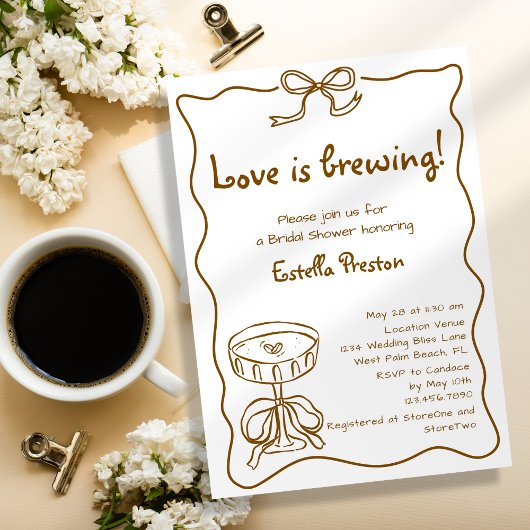 Love is brewing!
Please join us for
a Bridal Shower honoring
Estella Preston
May 28 at 11:30 am
Location Venue
1234 Wedding Bliss Lane
West Palm Beach, FL
RSVP to Candace
by May 10th
123.456.7890
Registered at StoreOne and
StoreTwo